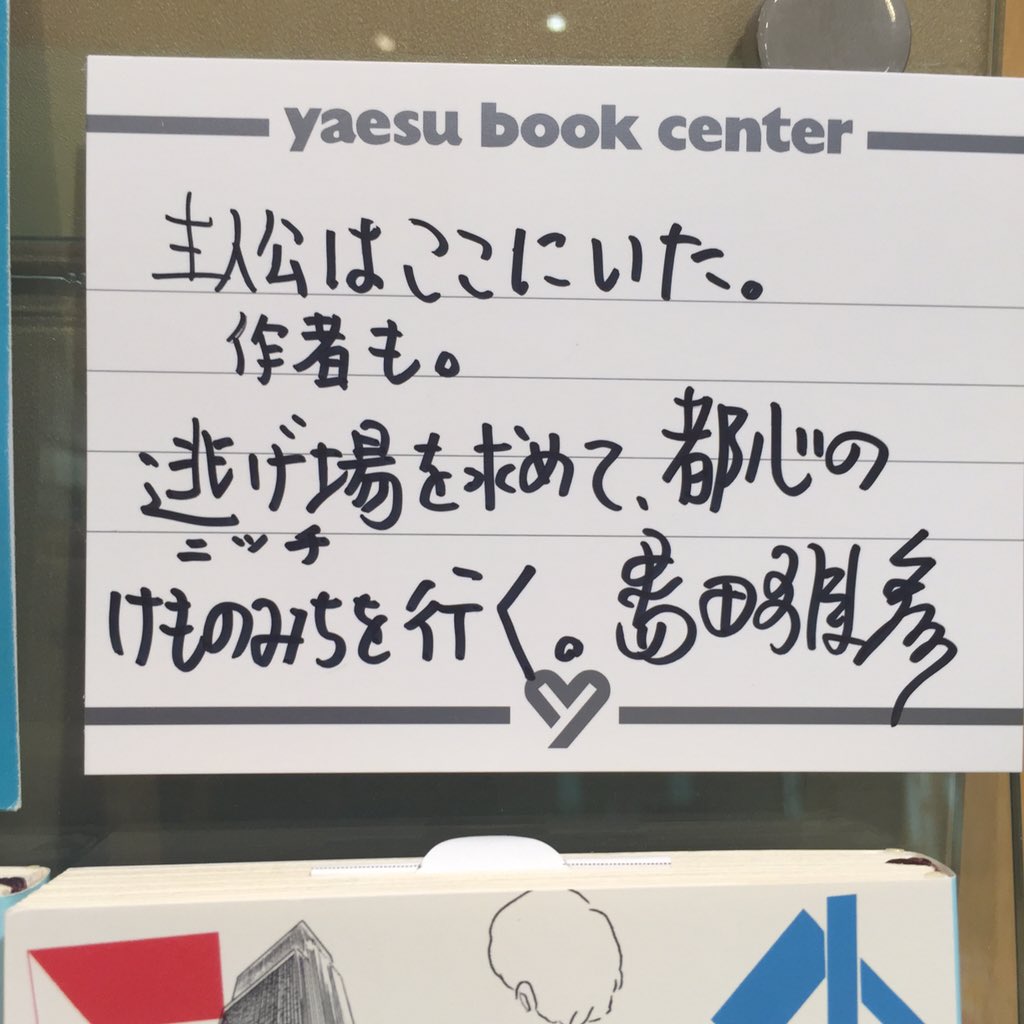 yaesu book center
主人公はここにいた。
作者も。
逃げ場を求めて、都心の
ニッチ
けものみちを行く。島田雅彦